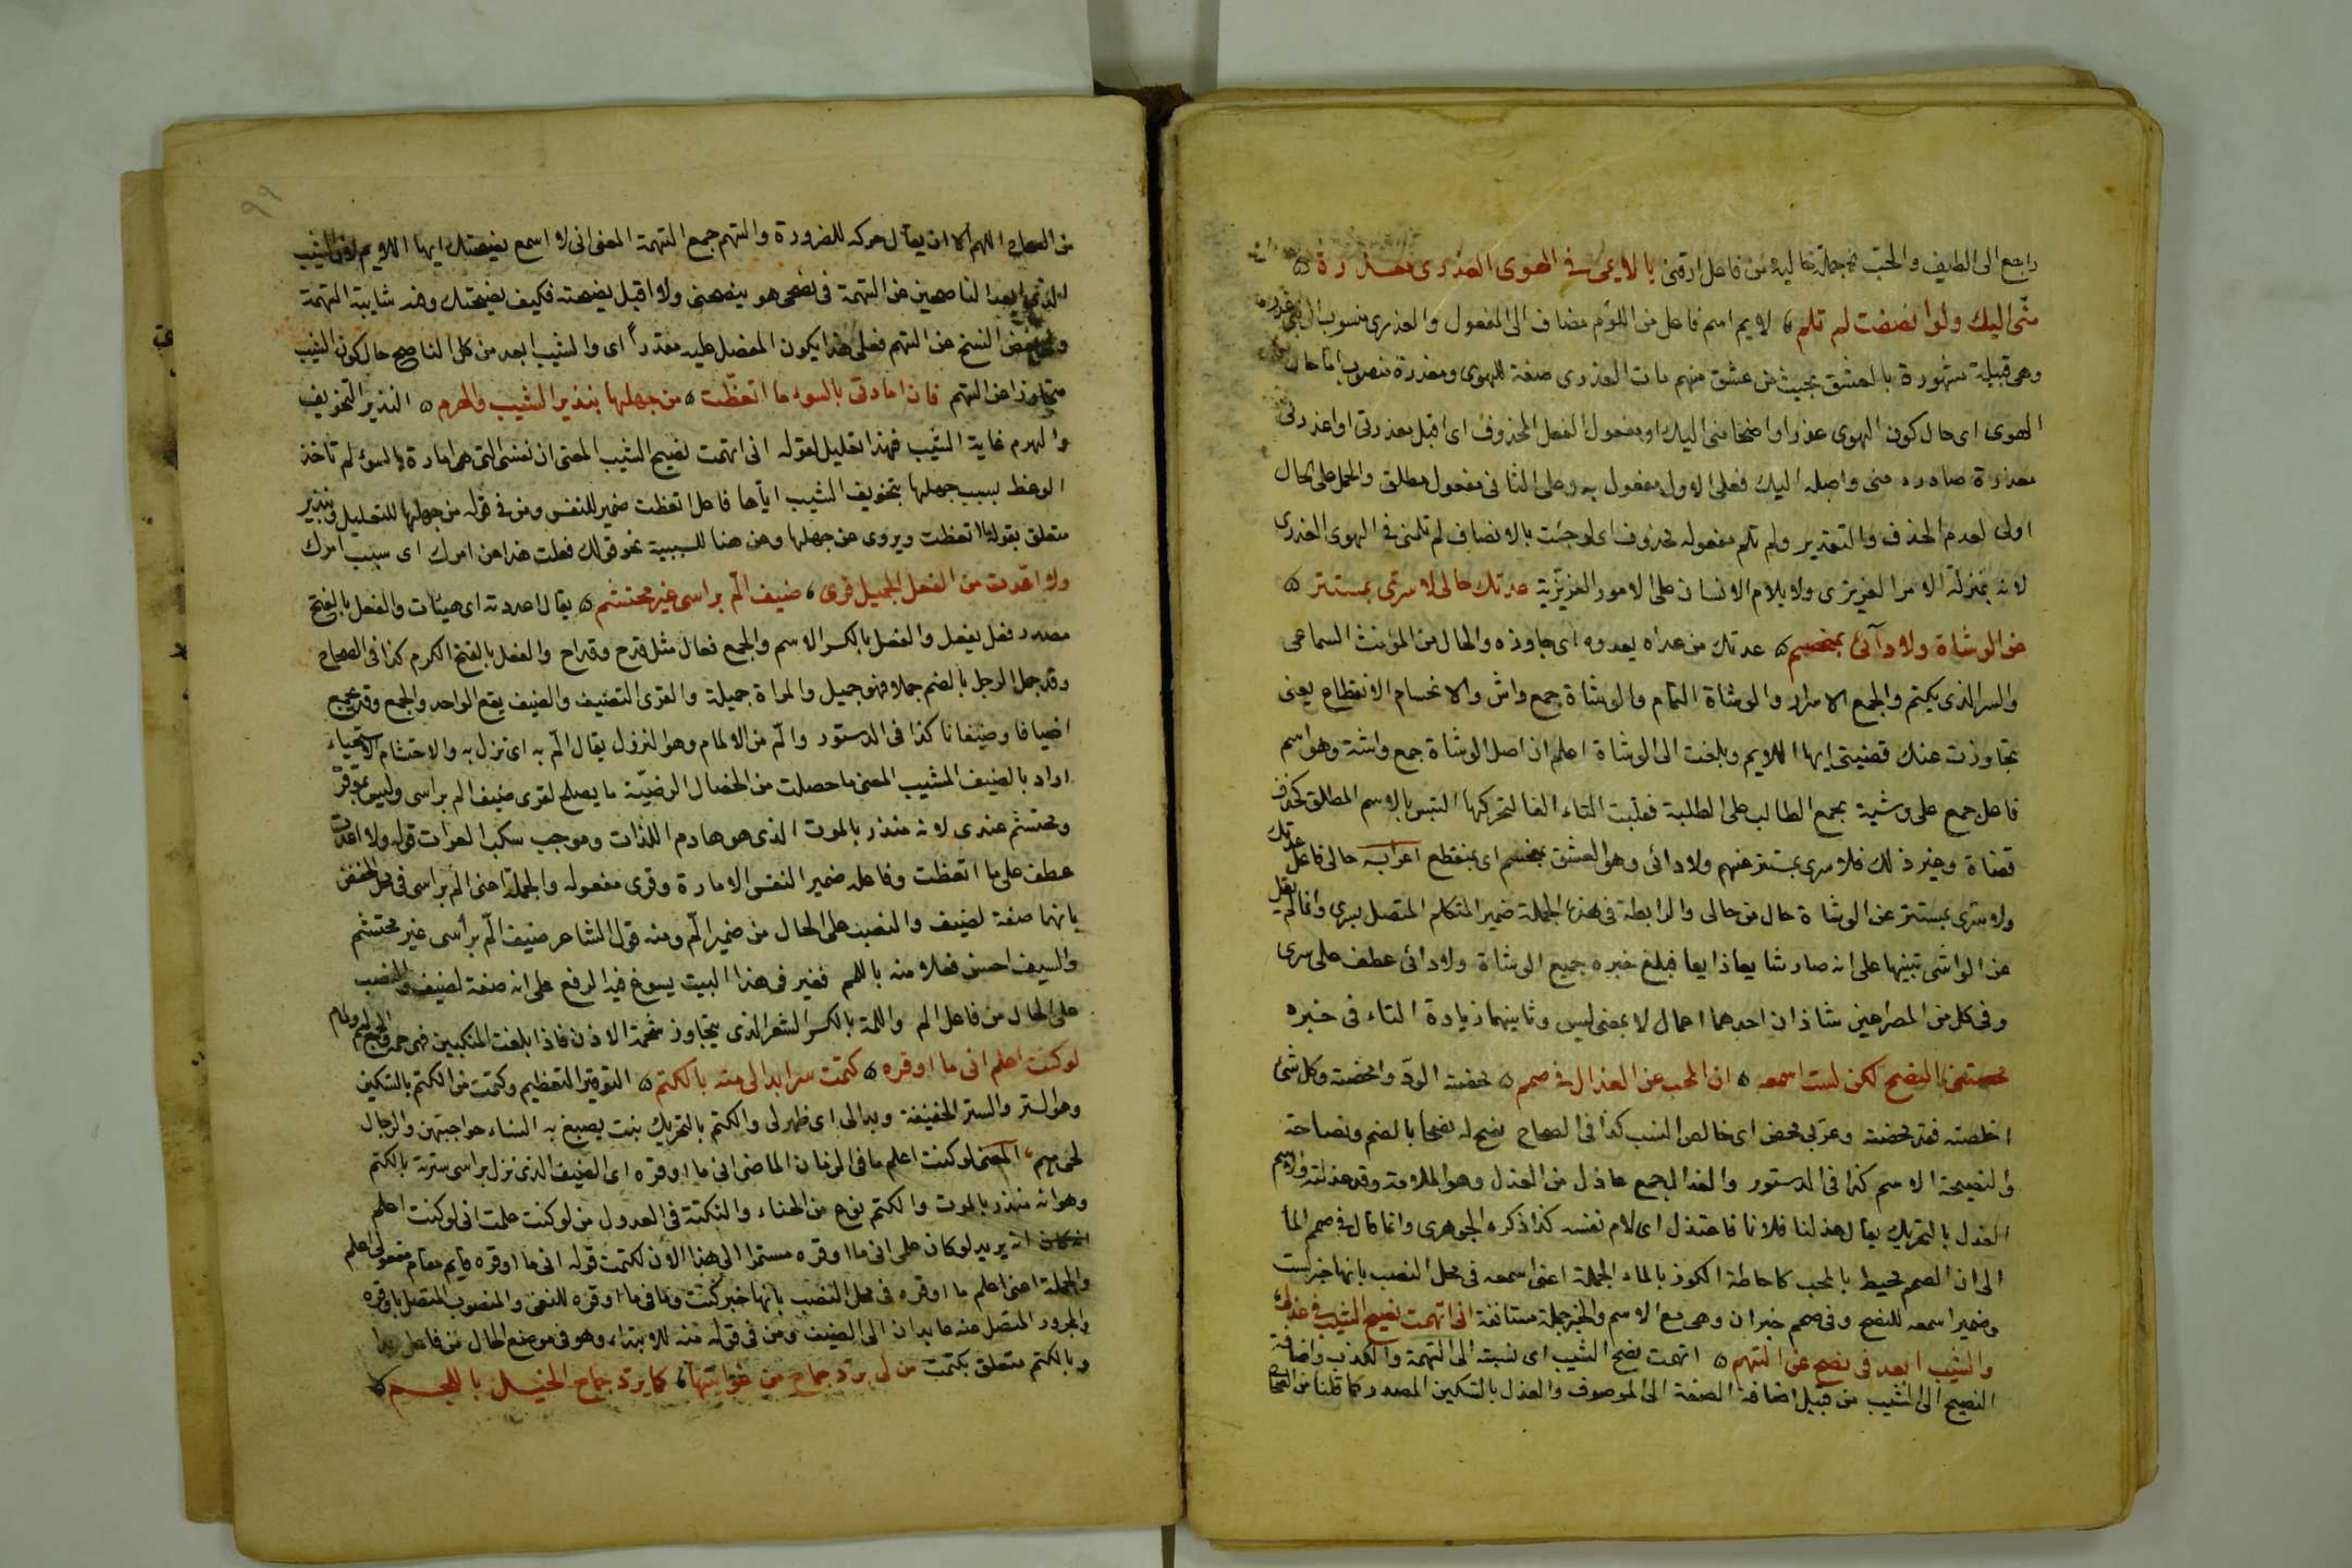 راجع الى الطيف والحب جملة حالية من فاعل ارقنى يا لايمى فى الهوى العذرى معذرة
منّى اليك ولو انصفت لم تلم لايم اسم فاعل من اللوم مضاف الى المفعول والعذرى منسوب الى بنى عذرة
وهى قبيلة مشهورة بالعشق بحيث من عشق منهم مات العذرى صفة للهوى ومعذرة منصوب اما حال
الهوى اى حال كون الهوى عذرا واضحا منى اليك او مفعول الفعل المحذوف اى اقبل معذرتى او اعذرنى
معذرة صادرة منى واصلة اليك فعلى الاول مفعول به وعلى الثانى مفعول مطلق والحمل على الحال
اولى لعدم الحذف والتقدير ولم تلم مفعوله محذوف اى لو جئت بالانصاف لم تلمنى فى الهوى العذرى
لانه بمنزلة الامر الغريزى ولا يلام الانسان على الامور الغريزية عدتك حالى لا سرّى بمستتر
عن الوشاة ولا دائى بمنحسم عدتك من عداه يعدوه اى جاوزه والحال من المؤنث السماعى
والسر الذى يكتم والجمع الاسرار والوشاة النمام والوشاة جمع واش والانحسام الانقطاع يعنى
تجاوزت عنك قضيتى ايها اللايم وبلغت الى الوشاة اعلم ان اصل الوشاة جمع واشة وهو اسم
فاعل جمع على وشية بجمع الطالب على الطلبة فقلبت التاء الفا لتحركها التبس بالاسم المطلق كحذف
قضاة وغير ذلك فلا سرى بمستتر عنهم ولا دائى وهو العشق بمنحسم اى بمنقطع اعرابه حالى فاعل عدتك
ولا سرى بمستتر عن الوشاة حال من حالى والرابطة فى هذه الجملة ضمير المتكلم المتصل بسرى وانما لم يقل
عن الواشى تنبيها على انه صار شايعا ذايعا فبلغ خبره جميع الوشاة ولا دائى عطف على سرى
وفى كل من المصراعين شاذان احدهما اعمال لا بمعنى ليس وثانيهما زيادة التاء فى خبره
محضتنى النصح لكن لست اسمعه ان المحب عن العذال فى صمم محضته الودّ وامحضته وكل شئ
اخلصته فقد محضته وعربى محض اى خالص النسب كذا فى الصحاح نصح له نصحا بالضم ونصاحة
والنصيحة الاسم كذا فى الدستور والعذال جمع عاذل من العذل وهو الملامة وقد عذلته والاسم
العذل بالتحريك يقال عذلنا فلانا فاعتذل اى لام نفسه كذا ذكره الجوهرى وانما قال فى صمم
الى ان الصمم محيط بالمحب كاحاطة الكوز بالماء الجملة اعنى اسمعه فى محل النصب بانها خبر لست
وضمير اسمعه للنصح وفى صمم خبر ان وهى مع الاسم والخبر جملة مستانفة انى اتهمت نصيح الشيب فى عذلى
والشيب ابعد فى نصح عن التهم اتهمت نصح الشيب اى نسبته الى التهمة والكذب واضافة
النصيح الى الشيب من قبيل اضافة الصفة الى الموصوف والعذل بالتسكين المصدر كما قلنا من الصحاح
٩٩
من الصحاح اللهم الا ان يقال حركه للضرورة والتهم جمع التهمة المعنى انى لا اسمع نصيحتك ايها اللايم لان الشيب
ابعد الناصحين من التهمة فى نصحى هو ينصحنى ولا اقبل نصحته فكيف نصيحتك وفيه شايبة التهمة
بعض النسخ عن التهم فعلى هذا يكون المفضل عليه مقدراً اى والشيب ابعد من كل الناصح حال كون الشيب
متجاوزا عن التهم فان امارتى بالسوء ما اتعظت من جهلها بنذير الشيب والهرم النذير التخويف
والهرم غاية الشيب فهذا تعليل لقوله انى اتهمت نصيح الشيب المعنى ان نفسى التى هى امارة بالسوء لم تاخذ
الوعظ بسبب جهلها بتخويف الشيب اياها فاعل اتعظت ضمير للنفس ومن فى قوله من جهلها للتعليل بنذير
متعلق بقوله اتعظت ويروى عن جهلها وعن هنا للسببية نحو قولك فعلت هذا عن امرك اى سبب امرك
ولا اعدّت من الفعل الجميل قرى ضيف المّ براسى غير محتشم يقال اعددته اى هيّات والفعل بالفتح
مصدر فعل يفعل والفعل بالكسر الاسم والجمع فعال مثل قدح وقداح والفعل بالفتح الكرم كذا فى الصحاح
وقد جمل الرجل بالضم جمالا فهو جميل والمراة جميلة والقرى التضيف والضيف يقع الواحد والجمع وقد يجمع
اضيافا وضيفانا كذا فى الدستور والمّ من الالمام وهو النزول يقال المّ به اى نزل به والاحتشام الاستحياء
اراد بالضيف المشيب المعنى ما حصلت من الخصال الرضيّة ما يصلح لقرى ضيف الم براسى وليس بموقّر
ومحتشم عندى لانه منذر بالموت الذى هو هادم اللذات وموجب سكب العبرات قوله ولا اعدت
عطف على ما اتعظت وفاعله ضمير النفس الامارة وقرى مفعوله والجملة اعنى الم براسى فى محل الخفض
بانها صفة لضيف والنصب على الحال من ضمير المّ ومنه قول الشاعر ضيف المّ برأسى غير محتشم
والسيف احسن فعلا منه باللمم فغير فى هذا البيت يسوغ فيه الرفع على انه صفة لضيف والنصب
على الحال من فاعل الم واللمة بالكسر الشعر الذى يتجاوز شحمة الاذن فاذا بلغت المنكبين فهى جمة والجمع لمم ولمام
لو كنت اعلم انى ما اوقره كتمت سرا بدا لى منه بالكتم التوقير التعظيم وكتمت من الكتم بالتسكين
وهو الستر والستر الخفيفة وبدا لى اى ظهر لى والكتم بالتحريك نبت يصبغ به النساء حواجبهن والرجال
لحاهم المعنى لو كنت اعلم ما فى الزمان الماضى انى ما اوقره اى الضيف الذى نزل براسى سترته بالكتم
وهو انه منذر بالموت والكتم نوع من الحناء والنكتة فى العدول من لو كنت علمت الى لو كنت اعلم
انه يريد لو كان على انى ما اوقره مستمرا الى هذا الان لكتمت قوله انى ما اوقره قايم مقام مفعولى اعلم
والجملة اعنى اعلم ما اوقره فى محل النصب بانها خبر كنت وما فى ما اوقره للنفى والمنصوب المتصل باوقره
والمجرور المتصل منه عايدان الى الضيف ومن فى قوله منه للابتداء وهو فى موضع الحال من فاعل بدا
وبالكتم متعلق بكتمت من لى بردّ جماح من غوايتها كما يردّ جماح الخيل باللجم